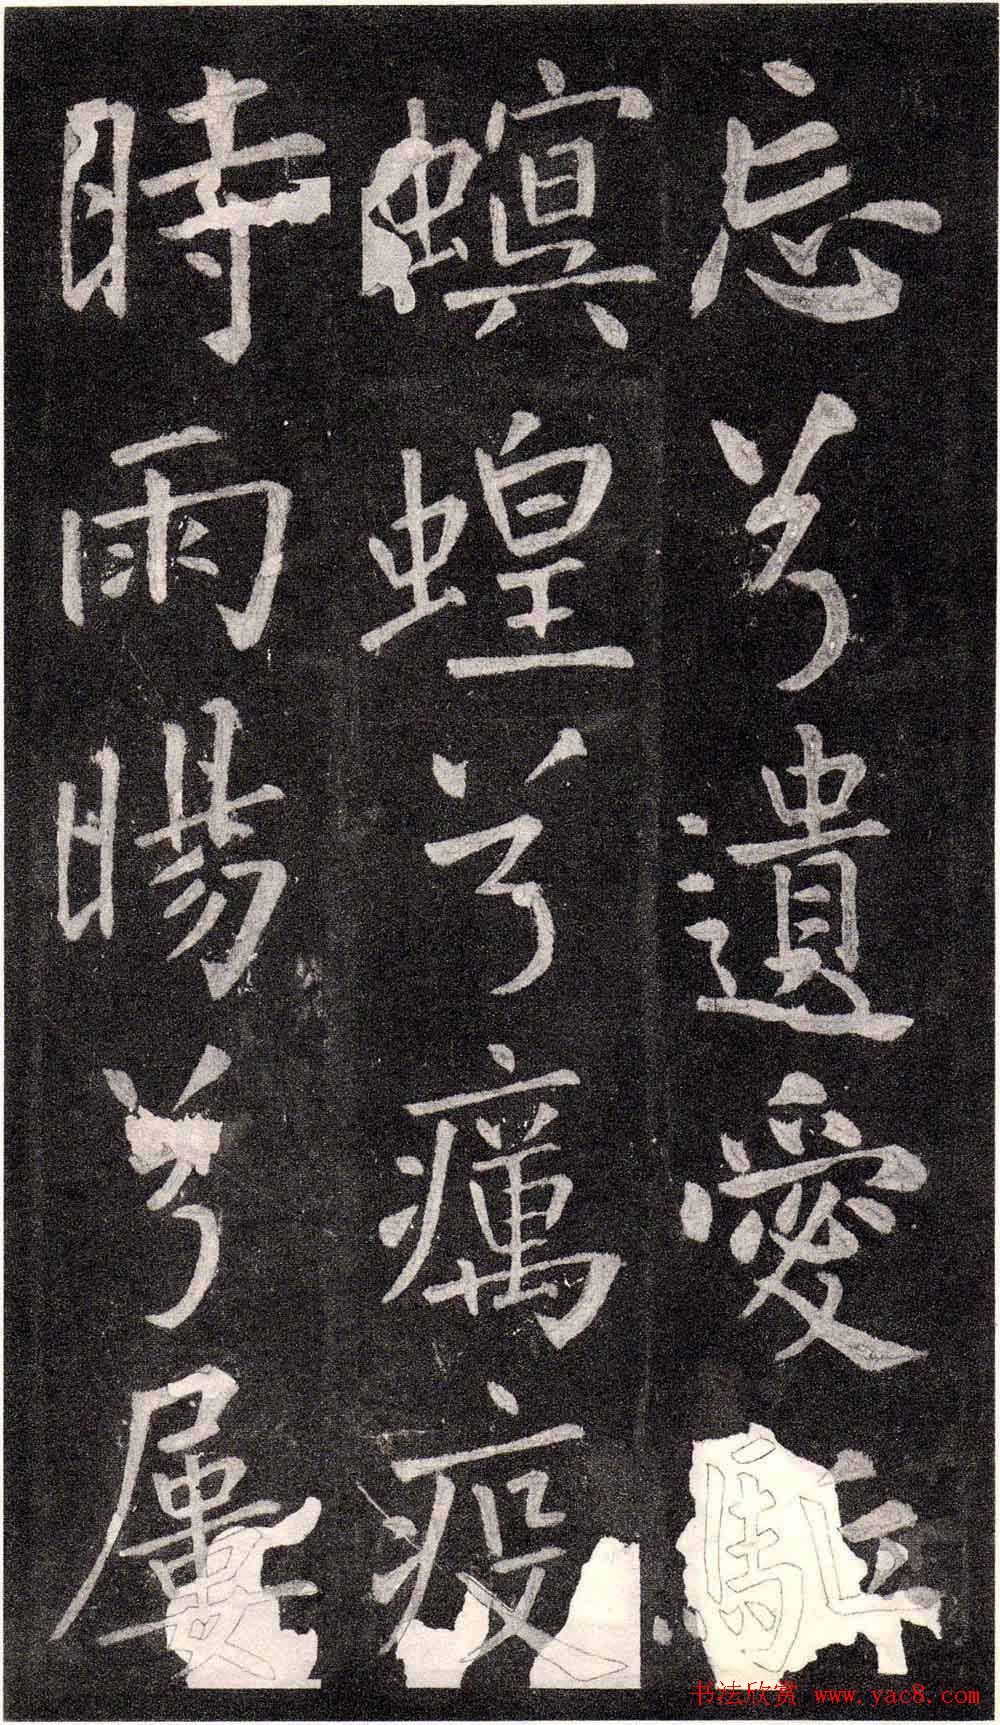 忘兮遺愛驅
螟蝗兮癘疫
時雨暘兮屢
书法欣赏 www.yac8.com